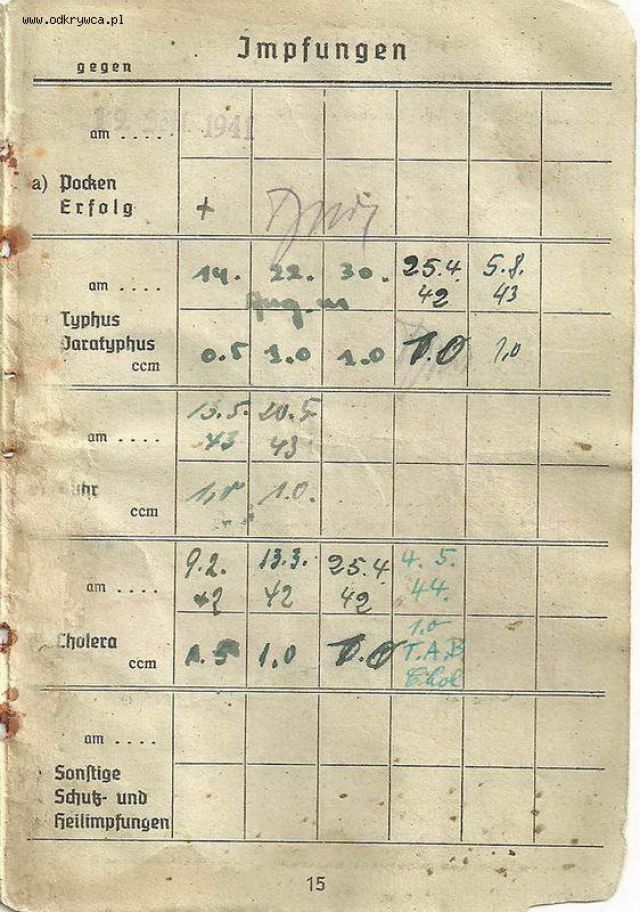 www.odkrywca.pl
Impfungen
gegen
am . . . .
1941
a) Pocken
Erfolg
+
am . . . .
14. 22. 30. 25.4. 5.8.
Aug. 42 43
Typhus
Paratyphus
ccm
0.5 1.0 1.0 1.0 1,0
am . . . .
13.5. 20.5.
43 43
ccm
1,0 1.0.
am . . . .
9.2. 13.3. 25.4. 4. 5.
42 42 42 44.
Cholera
ccm
1.5 1.0 1.0 1.0
T.A.B
Chol
am . . . .
Sonstige
Schutz- und
Heilimpfungen
15